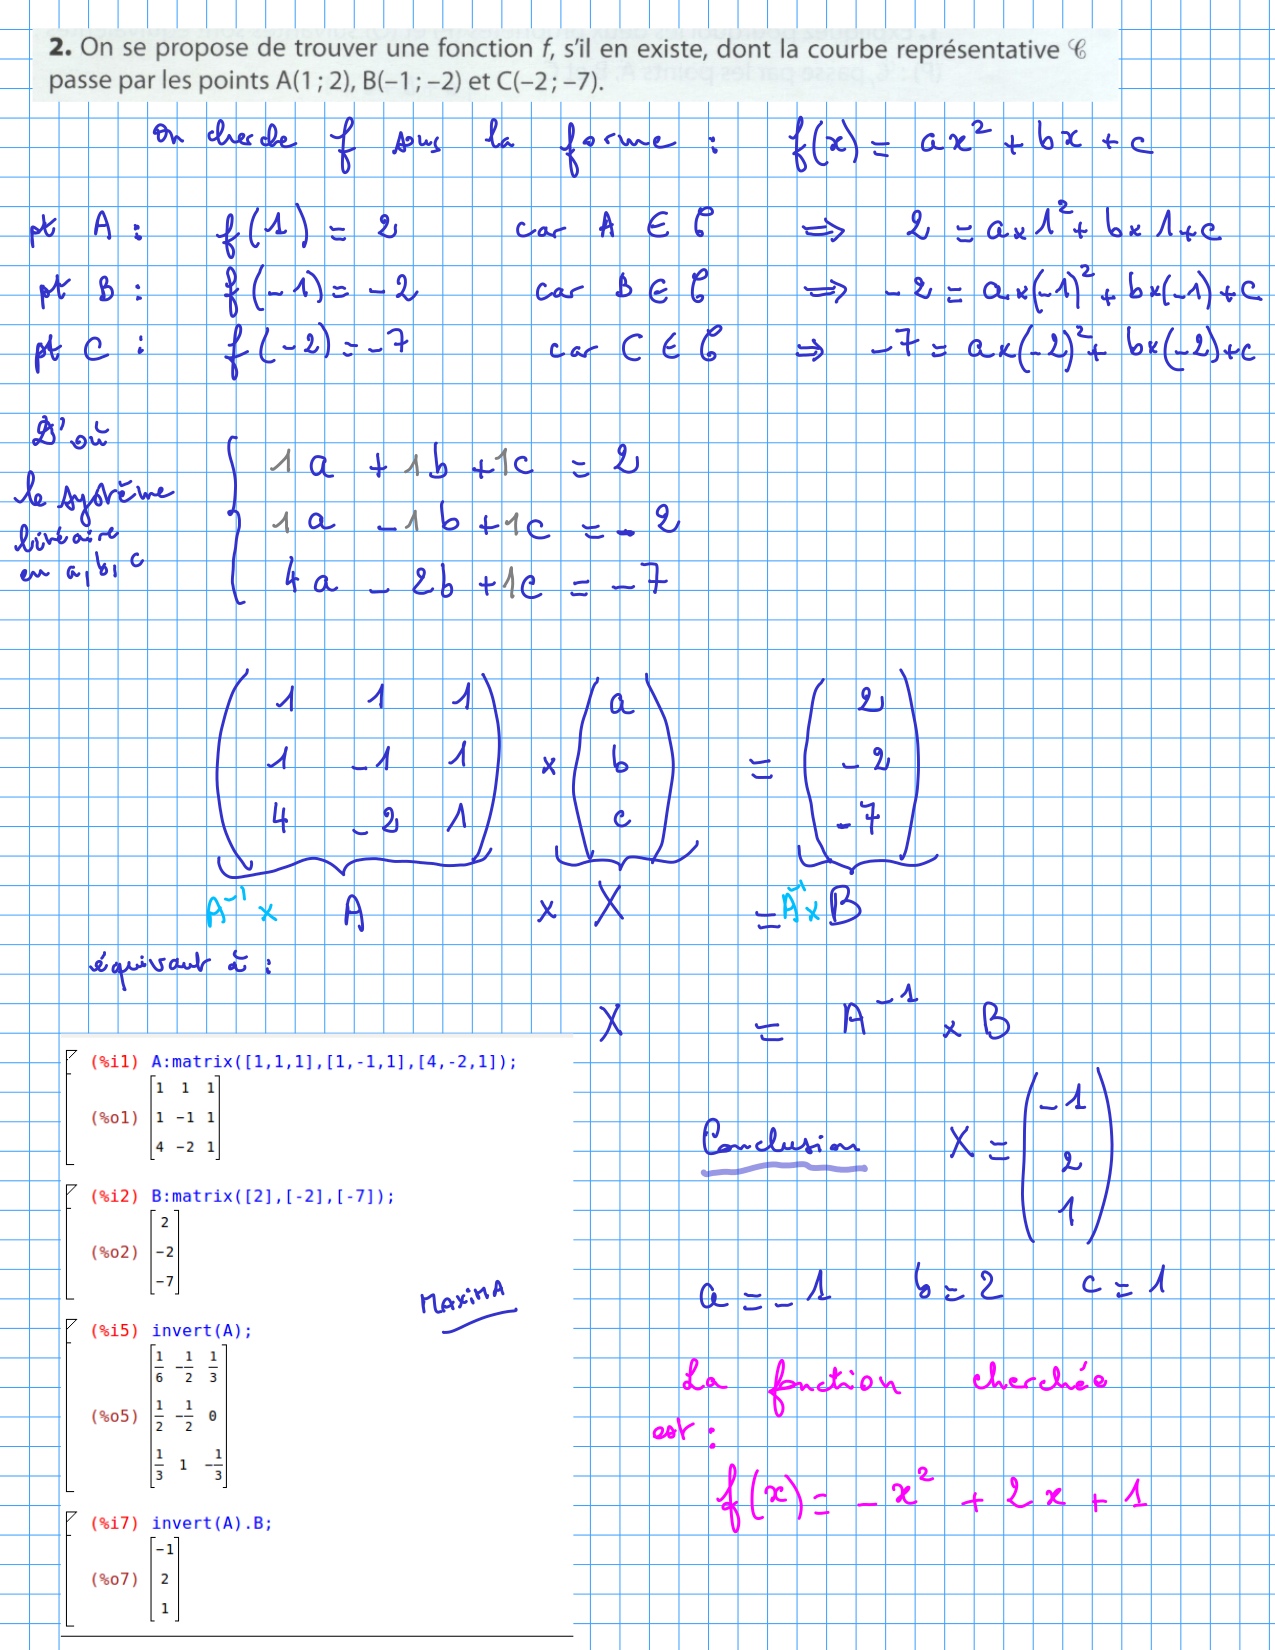 2. On se propose de trouver une fonction f, s'il en existe, dont la courbe représentative 𝒞
passe par les points A(1 ; 2), B(−1 ; −2) et C(−2 ; −7).
On cherche f sous la forme : f(x) = ax² + bx + c
pt A : f(1) = 2 car A ∈ 𝒞 ⟹ 2 = a×1² + b×1+c
pt B : f(-1) = -2 car B ∈ 𝒞 ⟹ -2 = a×(-1)² + b×(-1)+c
pt C : f(-2) = -7 car C ∈ 𝒞 ⟹ -7 = a×(-2)² + b×(-2)+c
D'où
le système
linéaire
en a, b, c
1a + 1b + 1c = 2
1a - 1b + 1c = -2
4a - 2b + 1c = -7
1 1 1 a 2
1 -1 1 × b = -2
4 -2 1 c -7
A⁻¹ × A × X = A⁻¹ × B
équivaut à :
X = A⁻¹ × B
(%i1) A:matrix([1,1,1],[1,-1,1],[4,-2,1]);
1 1 1
(%o1) 1 −1 1
4 −2 1
(%i2) B:matrix([2],[-2],[-7]);
2
(%o2) −2
−7
(%i5) invert(A);
1/6 −1/2 1/3
(%o5) 1/2 −1/2 0
1/3 1 −1/3
(%i7) invert(A).B;
−1
(%o7) 2
1
MAXIMA
-1
Conclusion X = 2
1
a = -1 b = 2 c = 1
La fonction cherchée
est :
f(x) = -x² + 2x + 1